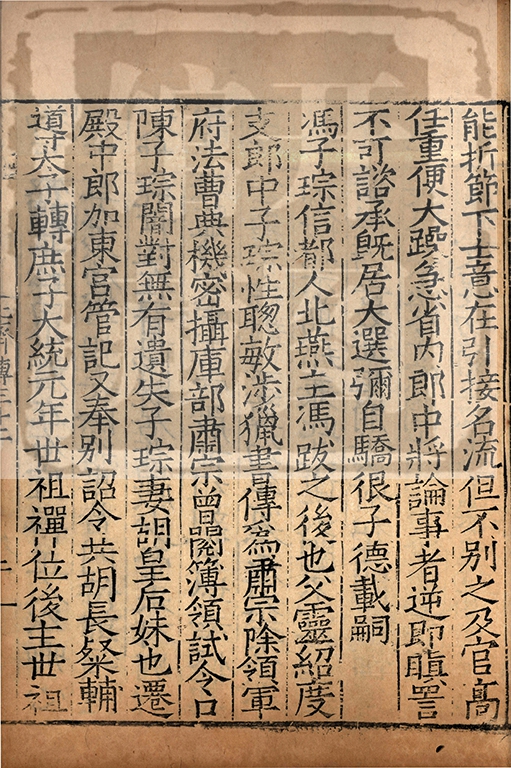 能折節下士意在引接名流但不別之及官高
任重便大躁急省內郎中將論事者逆即瞋詈
不可諮承旣居大選彌自驕很子德載嗣
馮子琮信都人北燕主馮跋之後也父靈紹度
支郎中子琮性聰敏涉獵書傳爲肅宗除領軍
府法曹典機密攝庫部肅宗曾閱簿領試令口
陳子琮闇對無有遺失子琮妻胡皇后妹也遷
殿中郎加東宮管記又奉別詔令共胡長粲輔
導太子轉庶子大統元年世祖禪位後主世祖